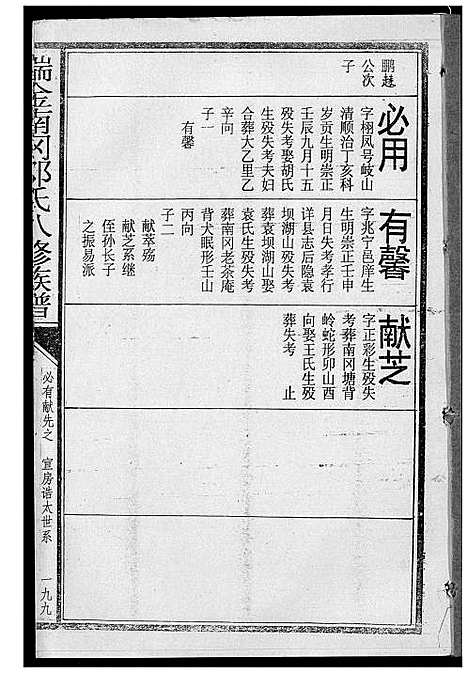 鹏
公次
子
必用
字栩凤号岐山
清顺治丁亥科
岁贡生明崇正
壬辰九月十五
殁失考娶胡氏
生殁失考夫妇
合葬大乙里乙
辛向
子一
有馨
有馨
字兆宁邑庠生
生明崇正壬申
月日失考孝行
详县志后隐袁
坝湖山殁失考
葬袁坝湖山娶
袁氏生殁失考
葬南冈老茶庵
背犬眠形壬山
丙向
子二
献萃殇
献芝系继
侄孙长子
之振易派
献芝
字正彩生殁失
考葬南冈塘背
岭蛇形卯山酉
向娶王氏生殁
葬失考 止
瑞金南冈邓氏八修族谱
必有献先之 宣房诰太世系
一九九